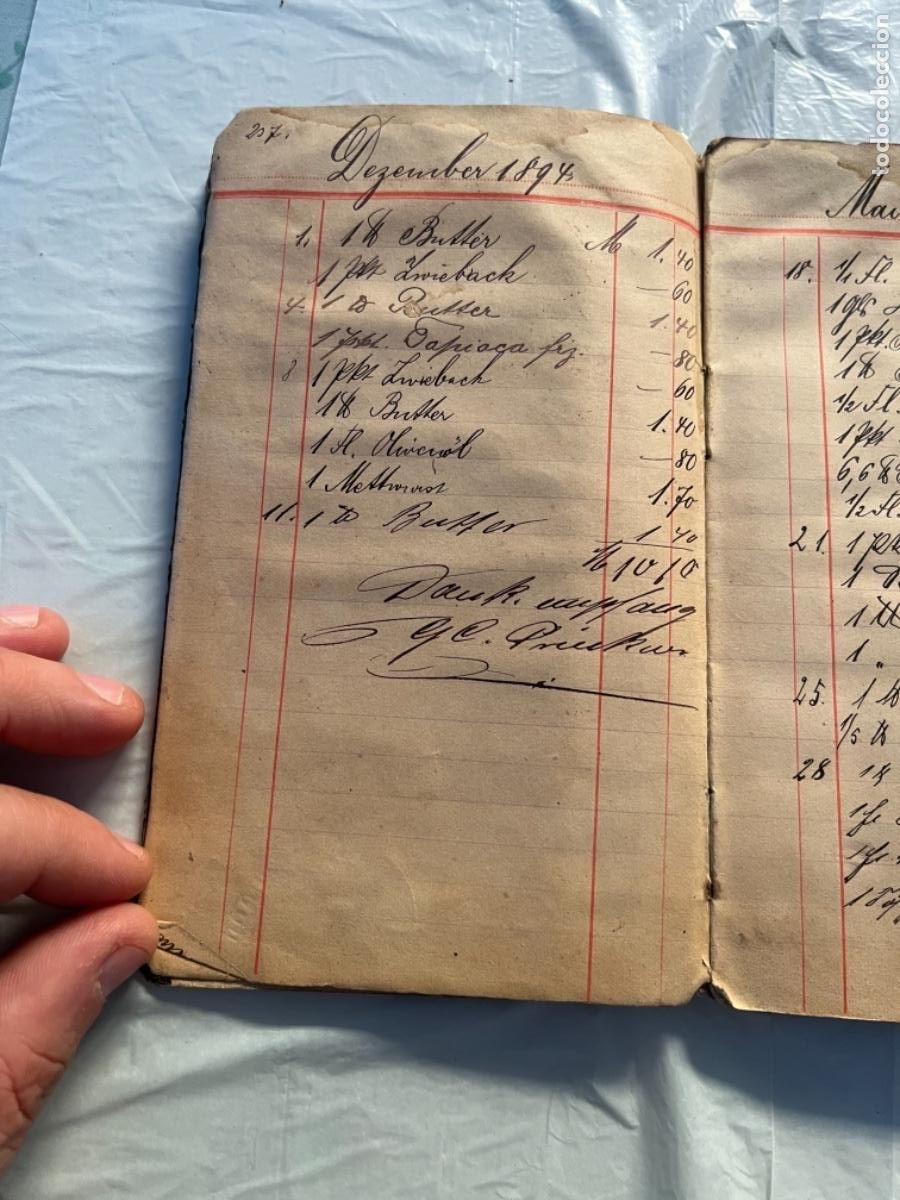 257.
Dezember 1894
1. 1 ℔ Butter M 1.40
1 Pkt Zwieback — 60
4. 1 ℔ Butter 1.40
1 Pkt. Tapioca frz. — 80
8 1 Pkt Zwieback — 60
1 ℔ Butter 1.40
1 Fl. Olivenöl — 80
1 Mettwurst 1.70
11. 1 ℔ Butter 1 40
M 10 10
Dank. empfang
G C.
Mai
18. 1/1 Fl.
1 gls
1 Pkt.
1 ℔
1/2 Fl.
1 Pkt
6,6 ℔
1/2 Fl.
21. 1 Pk
1
1 ℔
1 "
25. 1 ℔
1/5 ℔
28 1 ℔
1
todocoleccion